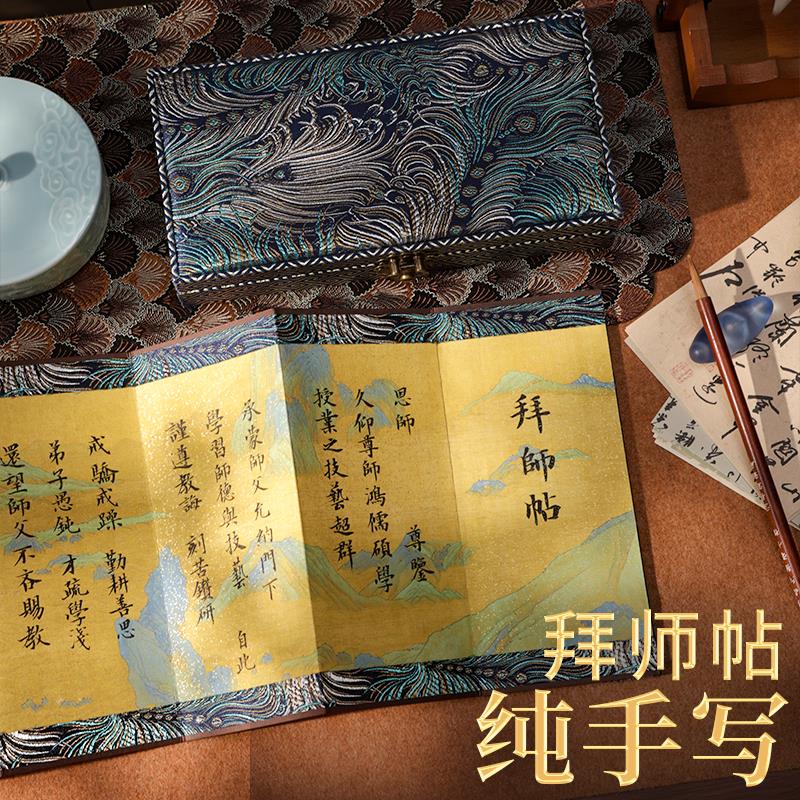 拜師帖
恩師 尊鑒
久仰尊師鴻儒碩學
授業之技藝超群
承蒙師父允納門下
學習師德與技藝 自此
謹遵教誨 刻苦鑽研
戒驕戒躁 勤耕善思
弟子愚鈍 才疏學淺
還望師父不吝賜教
拜师帖
纯手写